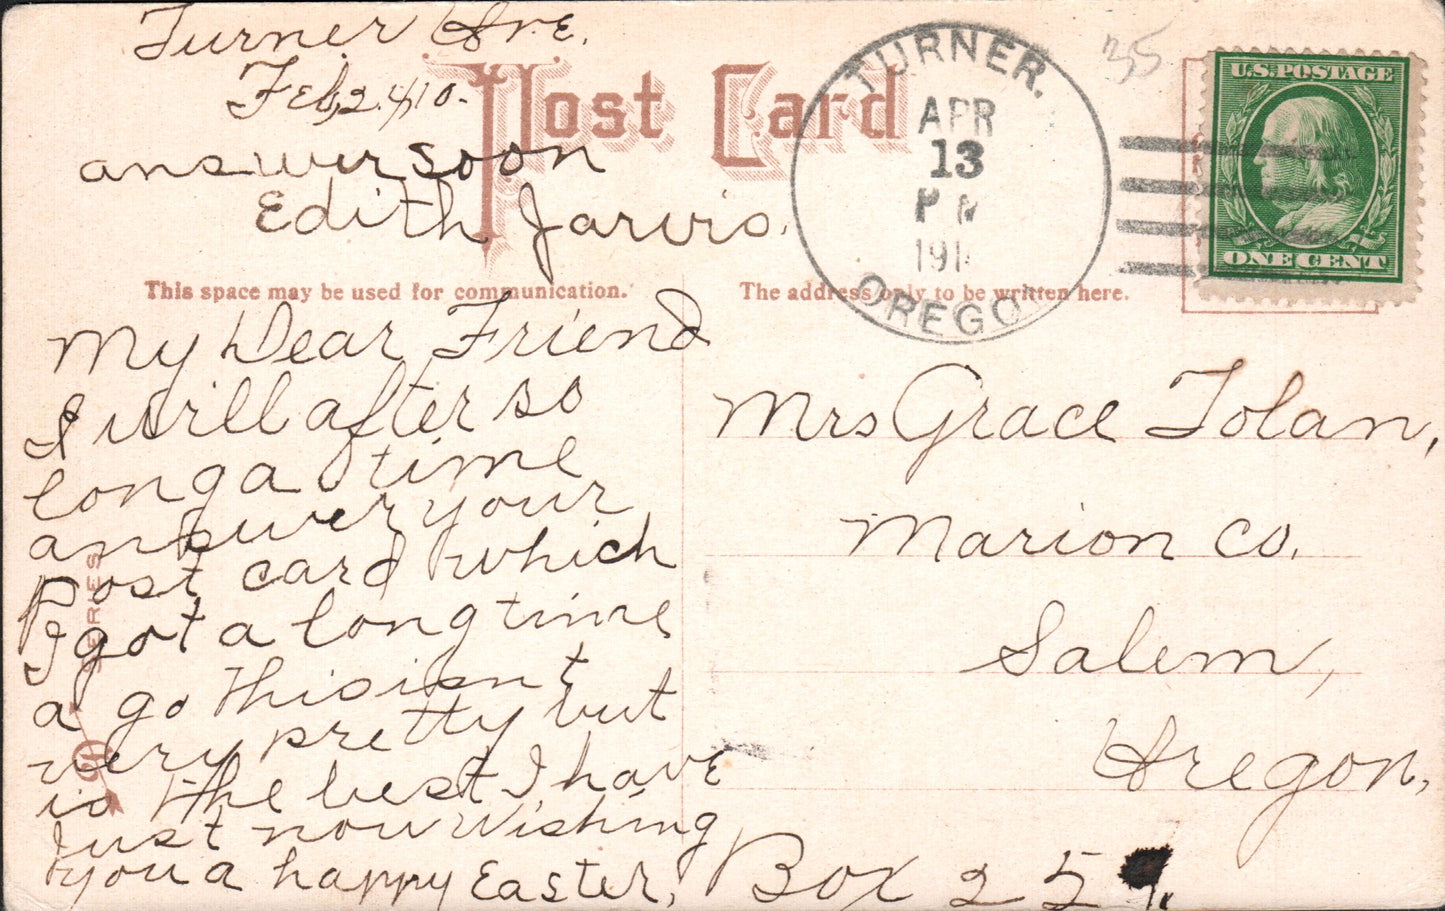 Turner Ore.
Feb, 24, 10.
answer soon
Edith Jarvis.
Post Card
TURNER.
APR
13
PM
191
OREGO
35
U.S. POSTAGE
ONE CENT
This space may be used for communication.
The address only to be written here.
My Dear Friend
I will after so
long a time
answer your
post card which
I got a long time
a go this isnt
very pretty but
is the best I have
just now wishing
you a happy Easter,
SERIES
Mrs Grace Tolan,
Marion Co.
Salem,
Oregon,
Box 25